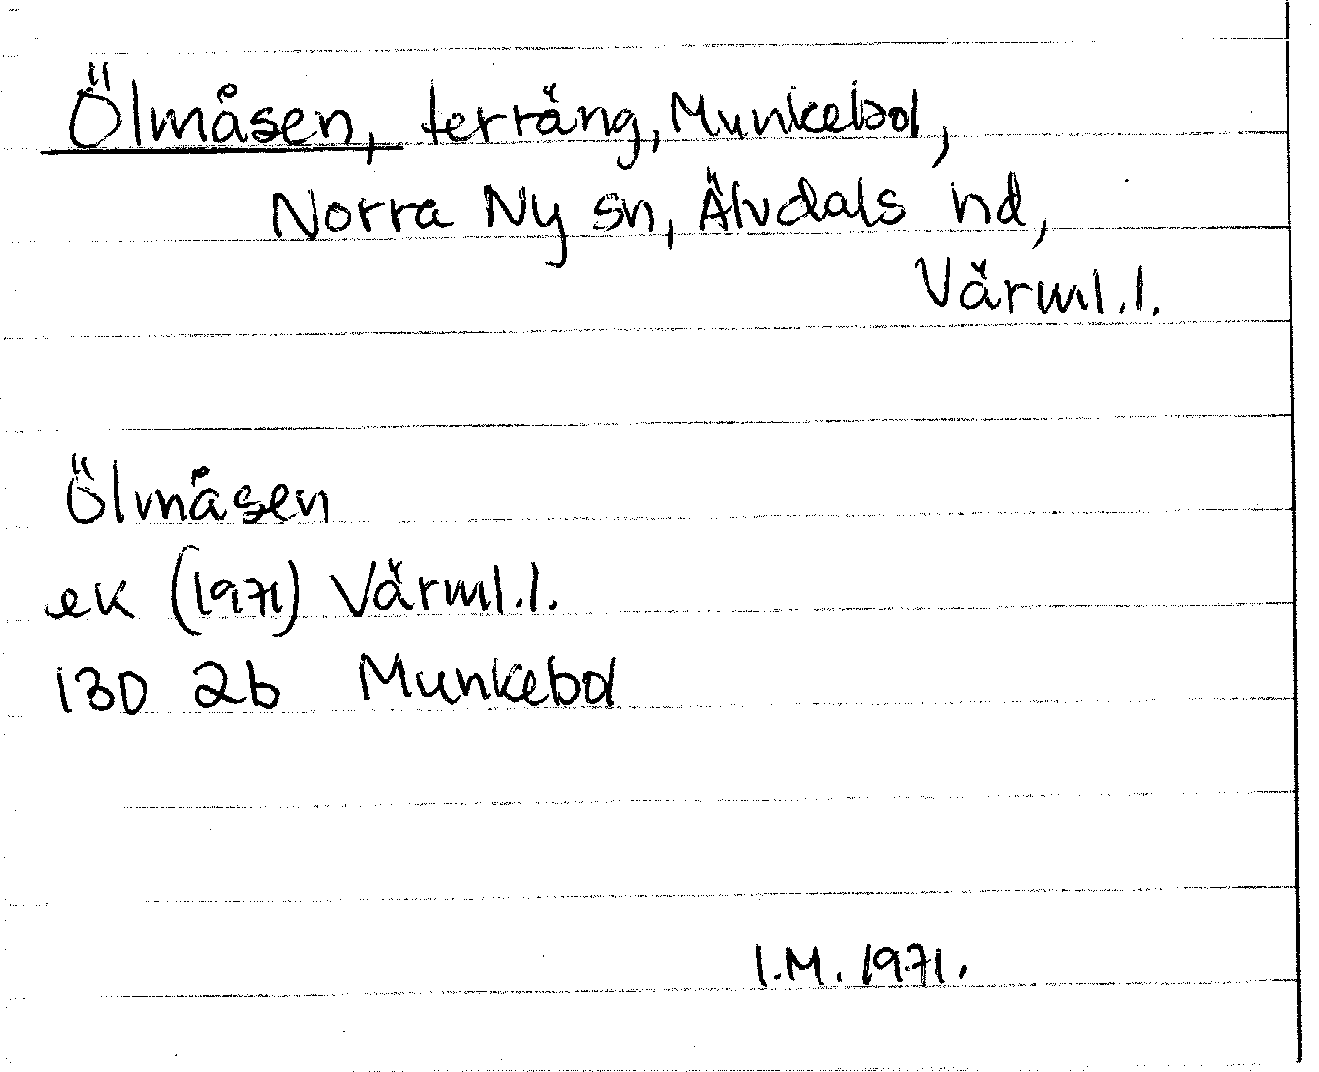 Ölmåsen, terräng, Munkebol,
Norra Ny sn, Älvdals hd,
Värml.l.
Ölmåsen
ek (1971) Värml.l.
13D 2b Munkebol
I.M. 1971.